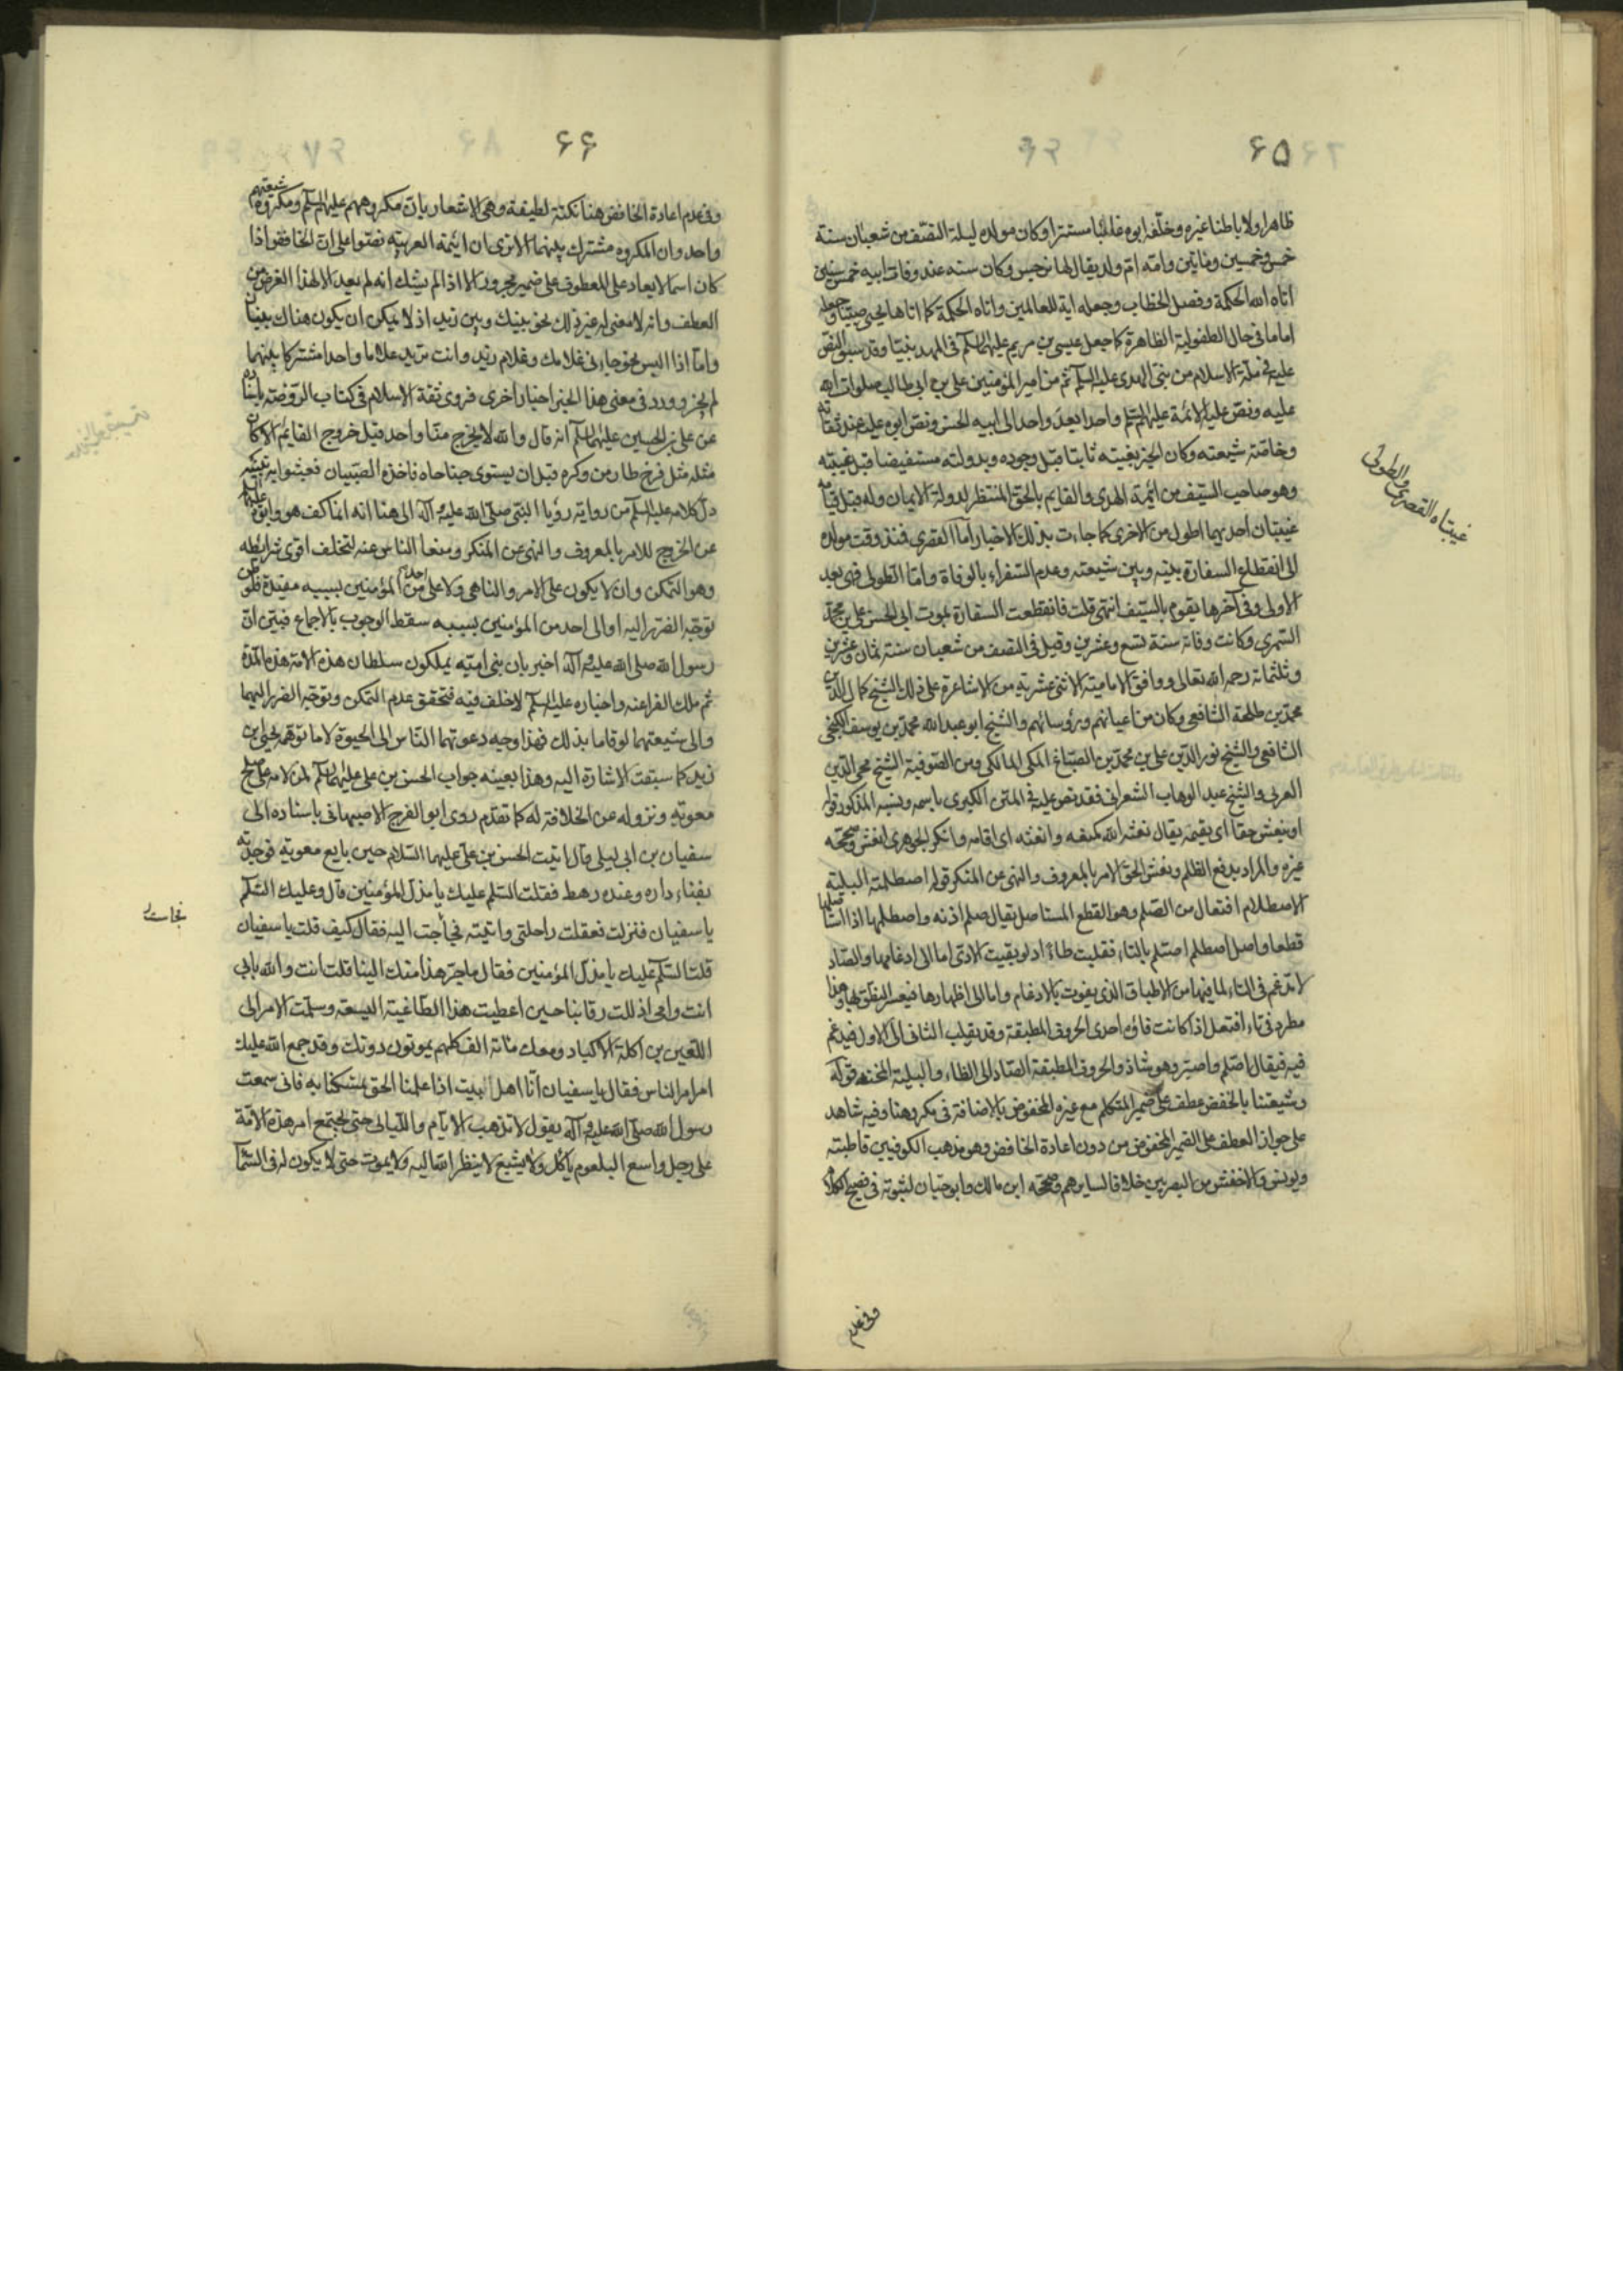 ۶۵
ظاهرا ولا باطنا غيره وخلّفه ابوه غائبا مستترا وكان مولده ليلة النصف من شعبان سنة
خمس وخمسين ومايتين وامّه امّ ولد يقال لها نرجس وكان سنه عند وفات ابيه خمس سنين
اتاه الله الحكمة وفصل الخطاب وجعله اية للعالمين واتاه الحكمة كما اتاها يحيى صبيّا وجعله
اماما في حال الطفولية الظاهرة كما جعل عيسى بن مريم عليهما السلم في المهد نبيّا وقد سبق النص
عليه في ملّة الاسلام من نبيّ الهدى عليه السلم ثم من امير المؤمنين علي بن ابي طالب صلوات الله
عليه ونصّ عليه الائمة عليهم السلم واحدا بعد واحد الى ابيه الحسن ونصّ ابوه عليه عند ثقاته
وخاصّة شيعته وكان الخبر بغيبته ثابتا قبل وجوده وبدولته مستفيضا قبل غيبته
وهو صاحب السيّف من ائمة الهدى والقايم بالحقّ المنتظر لدولة الايمان وله قبل قيامه
غيبتان احديهما اطول من الاخرى كما جاءت بذلك الاخبار امّا القصرى فمنذ وقت مولده
الى انقطاع السفارة بينه وبين شيعته وعدم السّفراء بالوفاة وامّا الطّولى فهي بعد
الاولى وفي آخرها يقوم بالسيّف انتهى قلت فانقطعت السفارة بموت ابي الحسن علي بن محمّد
السّمري وكانت وفاته سنة تسع وعشرين وقيل في النصف من شعبان سنة ثمان وعشرين
وثلثمائة رحمه الله تعالى ووافق الاماميّة الاثنى عشرية من الاشاعرة على ذلك الشيخ كمال الدّين
محمّد بن طلحة الشافعي وكان من اعيانهم ورؤسائهم والشيخ ابو عبد الله محمّد بن يوسف الكنجي
الشافعي والشيخ نور الدّين علي بن محمّد بن الصبّاغ المكي المالكي ومن الصّوفية الشيخ محي الدّين
العربي والشيخ عبد الوهاب الشعراني فقد نصّ عليه في المنن الكبرى باسمه ونسبه المذكور قوله
او ينعش حقا اي يقيمه يقال نعشه الله كمنعه وانعشه اي اقامه وانكر الجوهري انعش وصحّحه
غيره والمراد بدفع الظلم ونعش الحقّ الامر بالمعروف والنهي عن المنكر قوله اصطلمته البليّة
الاصطلام افتعال من الصّلم وهو القطع المستاصل يقال صلم اذنه واصطلمها اذا استاصلها
قطعا واصل اصطلم اصتلم بالتاء فقلبت طاء اذ لو بقيت لادّى اما الى ادغامها والصّاد
لا تدغم في التاء لما فيها من الاطباق الذي يفوت بالادغام واما الى اظهارها فيعسر النطق بها وهذا
مطرد في تاء افتعل اذا كانت فاؤه احدى الحروف المطبقة وقد يقلب الثاني الى الاول فيدغم
فيه فيقال اصّلم واصّبر وهو شاذ والحروف المطبقة الصّاد الى الظاء والبليّة المحنة قوله
وشيعتنا بالخفض عطف على ضمير المتكلم مع غيره المخفوض بالاضافة في مكروهنا وفيه شاهد
على جواز العطف على الضمير المخفوض من دون اعادة الخافض وهو مذهب الكوفيين قاطبة
ويونس والاخفش من البصريين خلافا لسايرهم وصحّحه ابن مالك وابو حيّان لثبوته في فصيح الكلام
غيبتاه القصرى والطولى
وفي عدم
۶۶
وفي عدم اعادة الخافض هنا نكتة لطيفة وهي الاشعار بانّ مكروههم عليهم السلم ومكروه شيعتهم
واحد وان المكروه مشترك بينهما الا ترى ان ائمة العربيّة نصّوا على انّ الخافض اذا
كان اسما لا يعاد على المعطوف على ضمير مجرور الا اذا لم يشك انه لم يعد الا لهذا الغرض من
العطف وانه لا معنى له غير ذلك نحو بينك وبين زيد اذ لا يمكن ان يكون هناك بينان
وامّا اذا البس نحو جاءني غلامك وغلام زيد وانت تريد غلاما واحدا مشتركا بينهما
لم يجز وورد في معنى هذا الخبر اخبار اخرى فروى ثقة الاسلام في كتاب الروضة باسناده
عن علي بن الحسين عليهما السلم انه قال والله لا يخرج منّا واحد قبل خروج القايم الا كان
مثله مثل فرخ طار من وكره قبل ان يستوى جناحاه فاخذه الصّبيان فعبثوا به
دلّ كلامه عليه السلم من رواية رؤيا النبي صلّى الله عليه وآله الى هنا انه انما كف هو وابوه عليهما السلم
عن الخروج للامر بالمعروف والنهي عن المنكر ومنعا الناس عنه لتخلف اقوى شرايطه
وهو التمكن وان لا يكون على الامر والناهي ولا على احد من المؤمنين بسببه مفسدة فلو
توجّه الضرر اليه او الى احد من المؤمنين بسببه سقط الوجوب بالاجماع فبيّن انّ
رسول الله صلى الله عليه وآله اخبر بان بني اميّة يملكون سلطان هذه الامّة هذه المدّة
ثم ملك الفراعنة واخباره عليه السلم لا خلف فيه فتحقق عدم التمكن وتوجّه الضرر اليهما
والى شيعتهما لو قاما بذلك فهذا وجه دعوتهما النّاس الى الحيوة لا ما توهّمه يحيى بن
زيد كما سبقت الاشارة اليه وهذا بعينه جواب الحسن بن علي عليهما السلم لمن لامه على صلح
معوية ونزوله عن الخلافة له كما تقدّم روى ابو الفرج الاصبهاني باسناده الى
سفيان بن ابي ليلى قال اتيت الحسن بن علي عليهما السّلام حين بايع معوية فوجدته
بفناء داره وعنده رهط فقلت السّلم عليك يا مذلّ المؤمنين قال وعليك السّلم
يا سفيان فنزلت فعقلت راحلتي واتيته فجلست اليه فقال كيف قلت يا سفيان
قلت السّلم عليك يا مذلّ المؤمنين فقال ما جرّ هذا منك الينا قلت انت والله بابي
انت وامي اذللت رقابنا حين اعطيت هذا الطّاغية البيعة وسلّمت الامر الى
اللّعين بن اكلة الاكباد ومعك مائة الف كلهم يموتون دونك وقد جمع الله عليك
امر الناس فقال يا سفيان انّا اهل البيت اذا علمنا الحق تمسّكنا به فاني سمعت
رسول الله صلّى الله عليه وآله يقول لا تذهب الايّام والليّالي حتى يجتمع امر هذه الامّة
على رجل واسع البلعوم ياكل ولا يشبع لا ينظر الله اليه ولا يموت حتى لا يكون له في السّماء